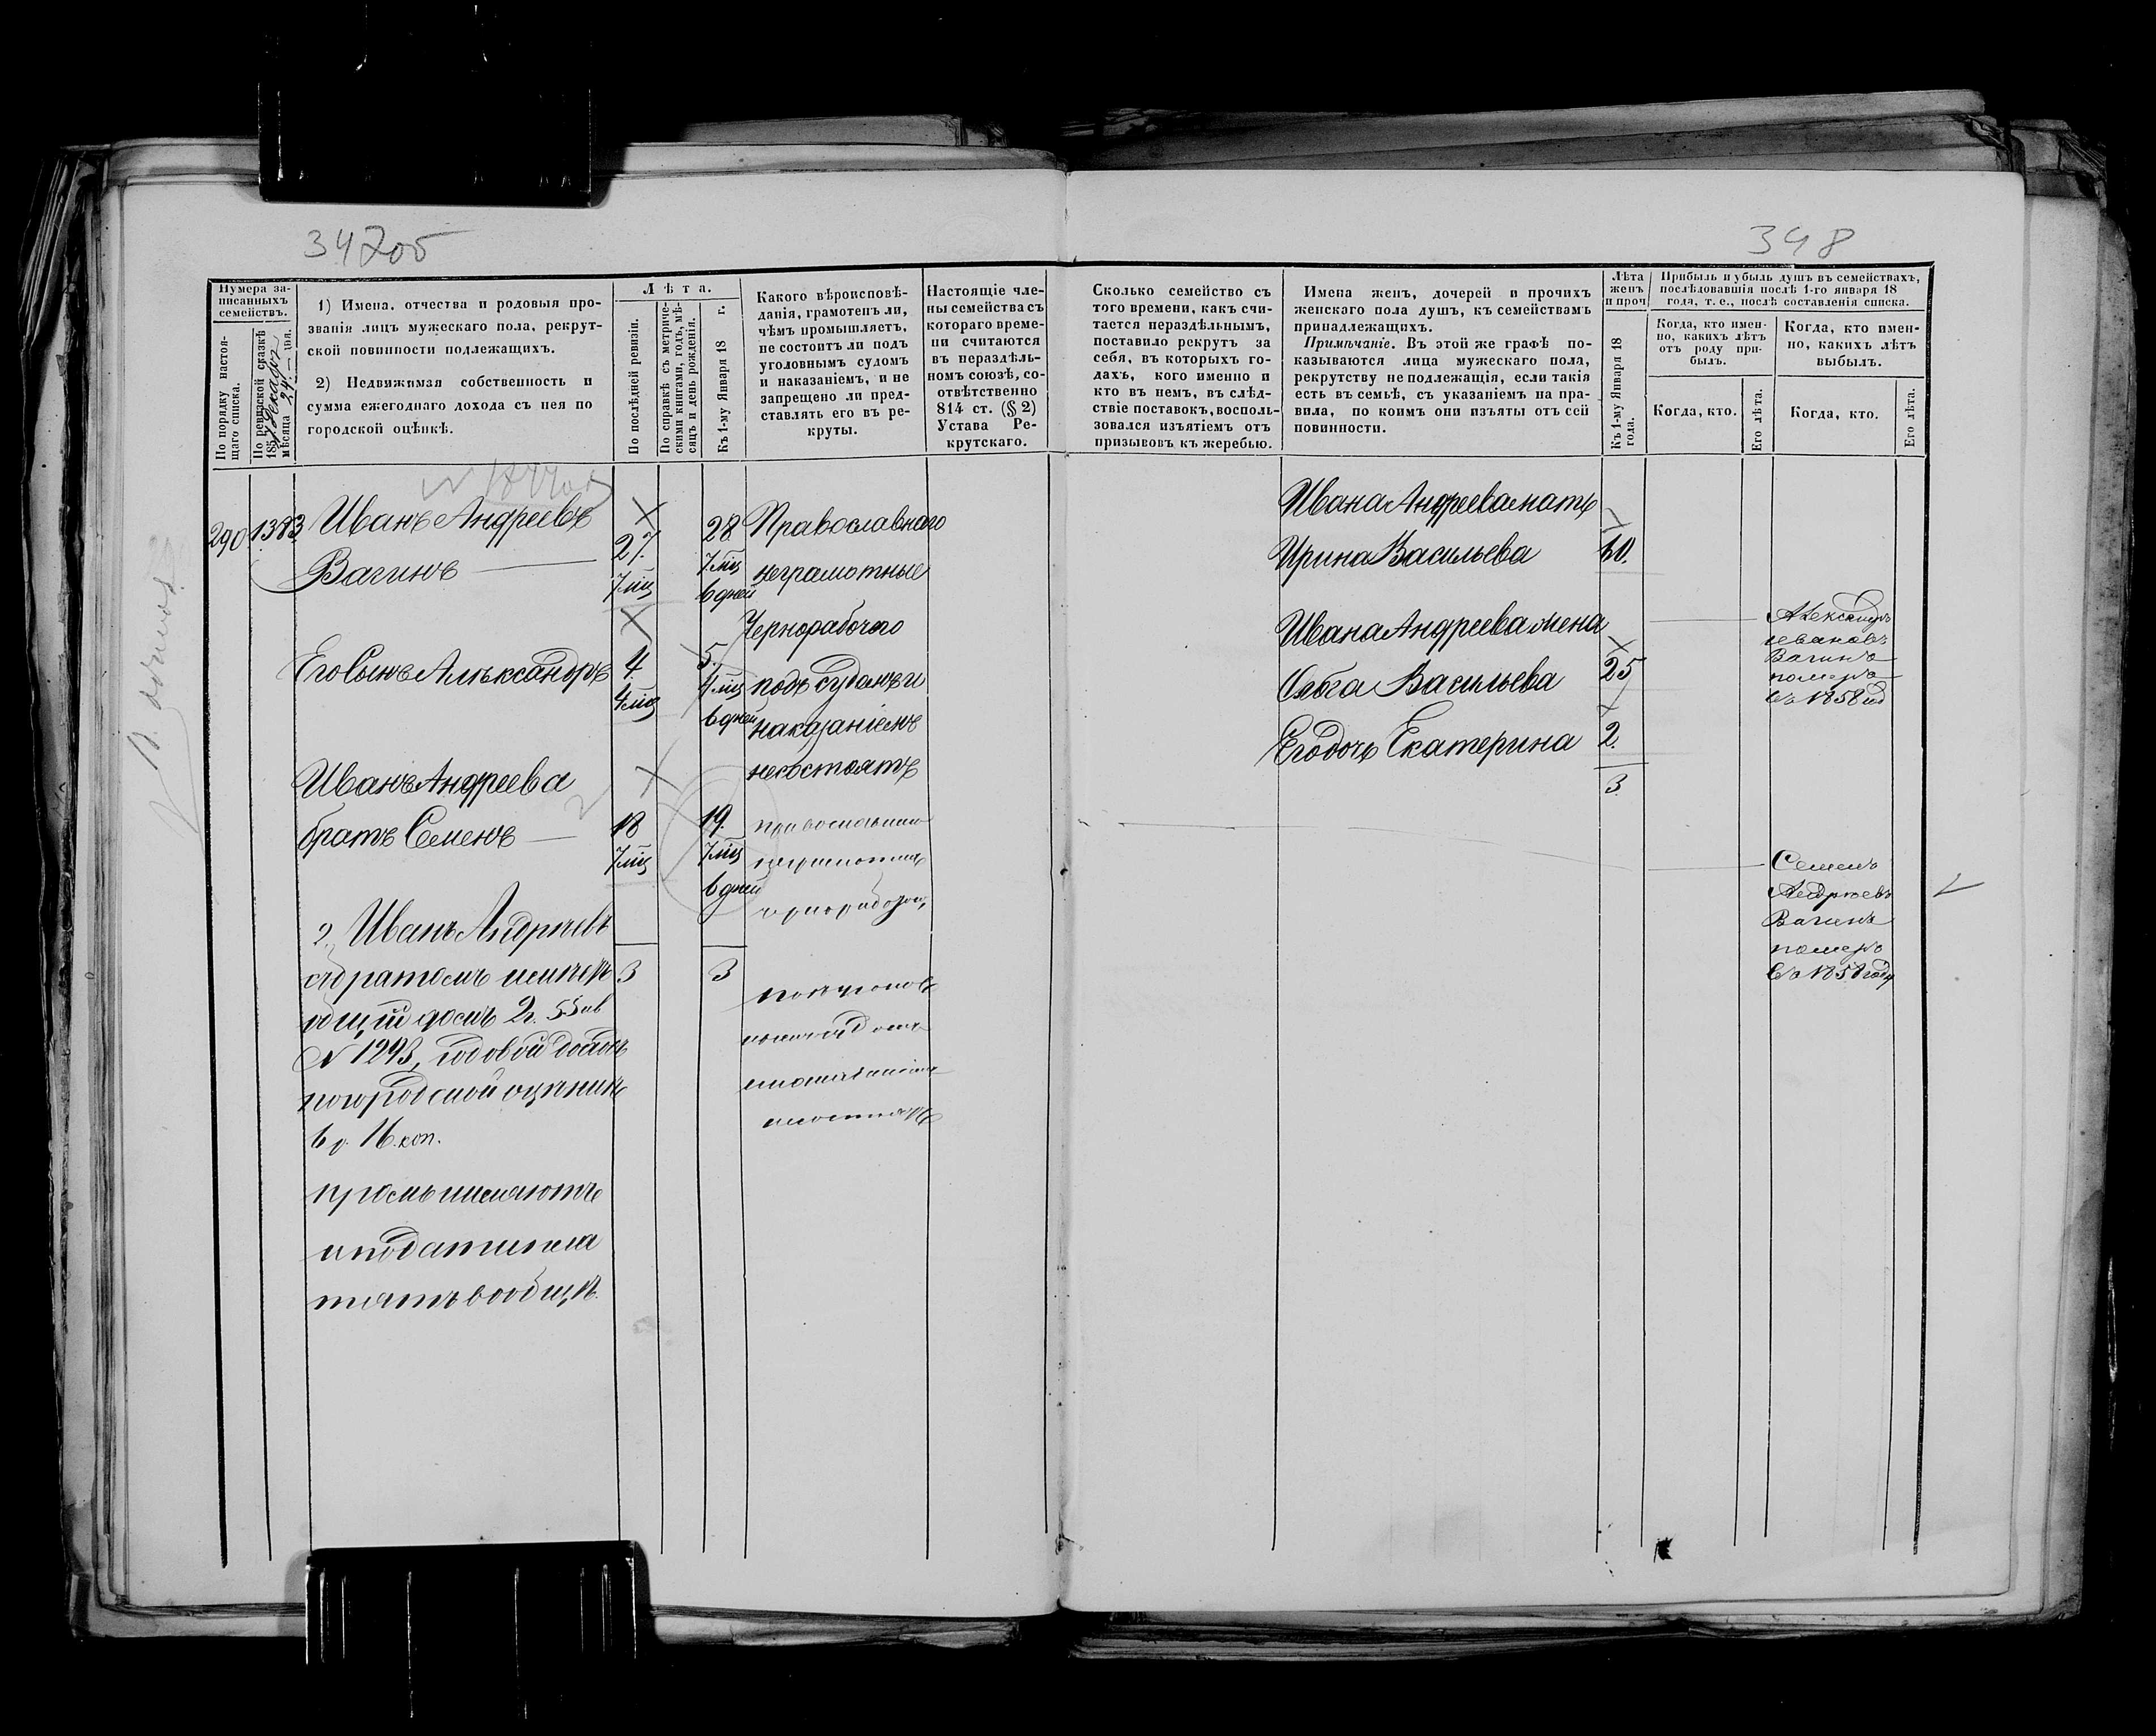 347об
348
Нумера за-
писанныхъ
семействъ.
По порядку настоя-
щаго списка.
По ревизской сказкѣ
185 Декабр
мѣсяца 24 дня.
1) Имена, отчества и родовыя про-
званія лицъ мужескаго пола, рекрут-
ской повинности подлежащихъ.
2) Недвижимая собственность и
сумма ежегоднаго дохода съ нея по
городской оцѣнкѣ.
Лѣта.
По послѣдней ревизіи.
По справкѣ съ метриче-
скими книгами, годъ, мѣ-
сяцъ и день рожденія.
Къ 1-му Января 18 г.
Какого вѣроисповѣ-
данія, грамотенъ ли,
чѣмъ промышляетъ,
не состоитъ ли подъ
уголовнымъ судомъ
и наказаніемъ, и не
запрещено ли пред-
ставлять его въ ре-
круты.
Настоящіе чле-
ны семейства съ
котораго време-
ни считаются
въ нераздѣль-
номъ союзѣ, со-
отвѣтственно
814 ст. (§ 2)
Устава Ре-
крутскаго.
Сколько семейство съ
того времени, какъ счи-
тается нераздѣльнымъ,
поставило рекрутъ за
себя, въ которыхъ го-
дахъ, кого именно и
кто въ немъ, въ слѣд-
ствіе поставокъ, восполь-
зовался изъятіемъ отъ
призывовъ къ жеребью.
Имена женъ, дочерей и прочихъ
женскаго пола душъ, къ семействамъ
принадлежащихъ.
Примѣчаніе. Въ этой же графѣ по-
казываются лица мужескаго пола,
рекрутству не подлежащія, если такія
есть въ семьѣ, съ указаніемъ на пра-
вила, по коимъ они изъяты отъ сей
повинности.
Лѣта
женъ
и проч
Къ 1-му Января 18
года.
Прибыль и убыль душъ въ семействахъ,
послѣдовавшія послѣ 1-го января 18
года, т. е., послѣ составленія списка.
Когда, кто имен-
но, какихъ лѣтъ
отъ роду при-
былъ.
Когда, кто имен-
но, какихъ лѣтъ
выбылъ.
Когда, кто.
Его лѣта.
Когда, кто.
Его лѣта.
290. 1383. Иванъ Андреевъ
Вагинъ
27.
7 мц
28
7 мц
6 дней
Его Сынъ Алѣксандръ
4.
4 мц
5.
4 мц
6 дней
Иванъ Андреева
братъ Семенъ
18
7 мц
19.
7 мц
6 дней
3
3
2. Иванъ Андрѣевъ
съ братомъ имѣютъ
общій домъ 2ч. 55 кв
№ 1293, годовой доходъ
по городской оцѣнкѣ
6 р. 16 коп.
промышляютъ
и подати пла
тятъ вообще.
Православнаго
неграмотные
Чернорабочего
подъ судомъ и
наказаніемъ
несостоятъ
Ивана Андреева мать
Ирина Васильева 60.
Ивана Андреева жена
Ольга Васильева 25
Его дочь Екатерина 2.
3.
Александръ
Ивановъ
Вагинъ
померъ
въ 1858 год
Семенъ
Андреевъ
Вагинъ
померъ